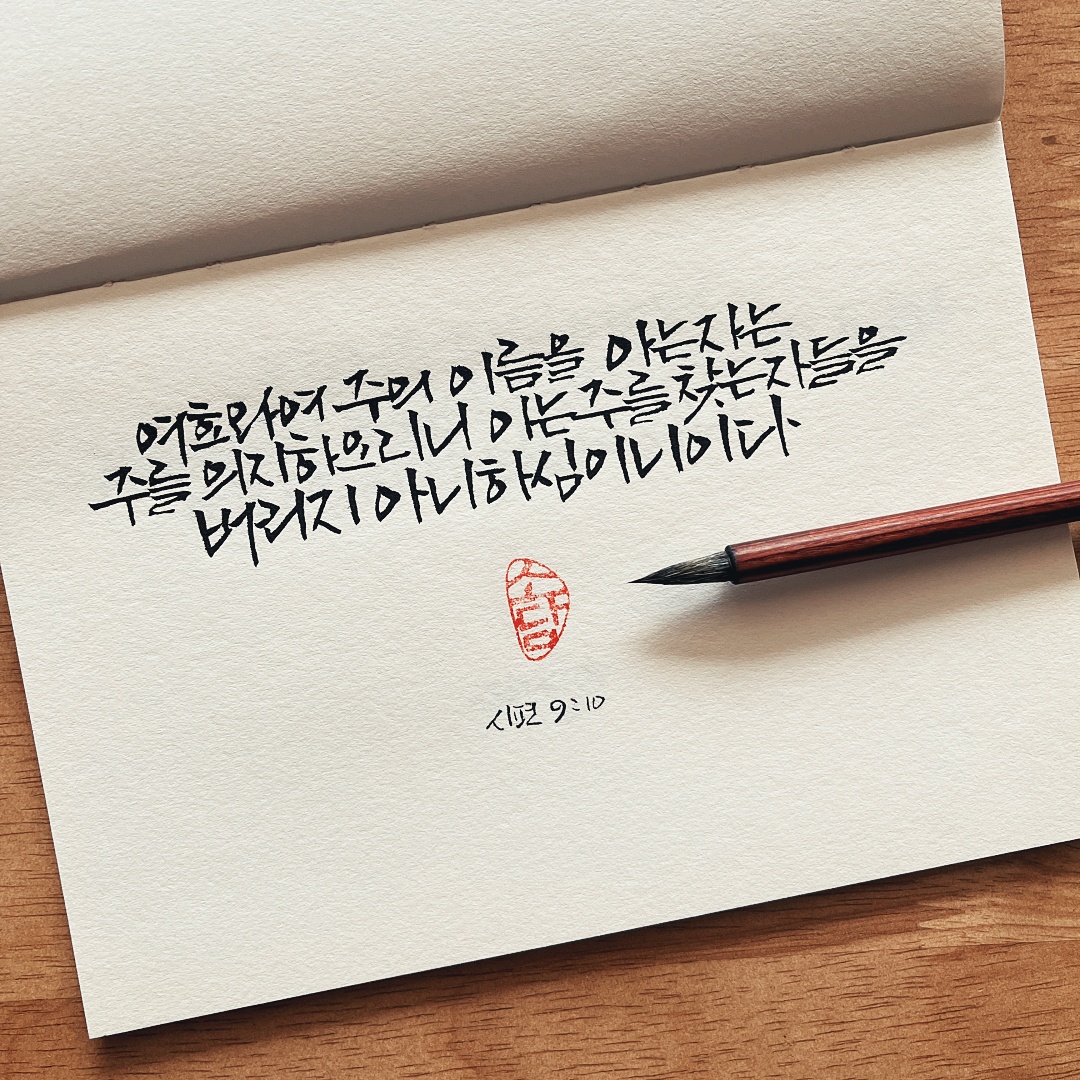 여호와여 주의 이름을 아는자는
주를 의지하오리니 이는 주를 찾는자들을
버리지 아니하심이니이다
시편 9:10